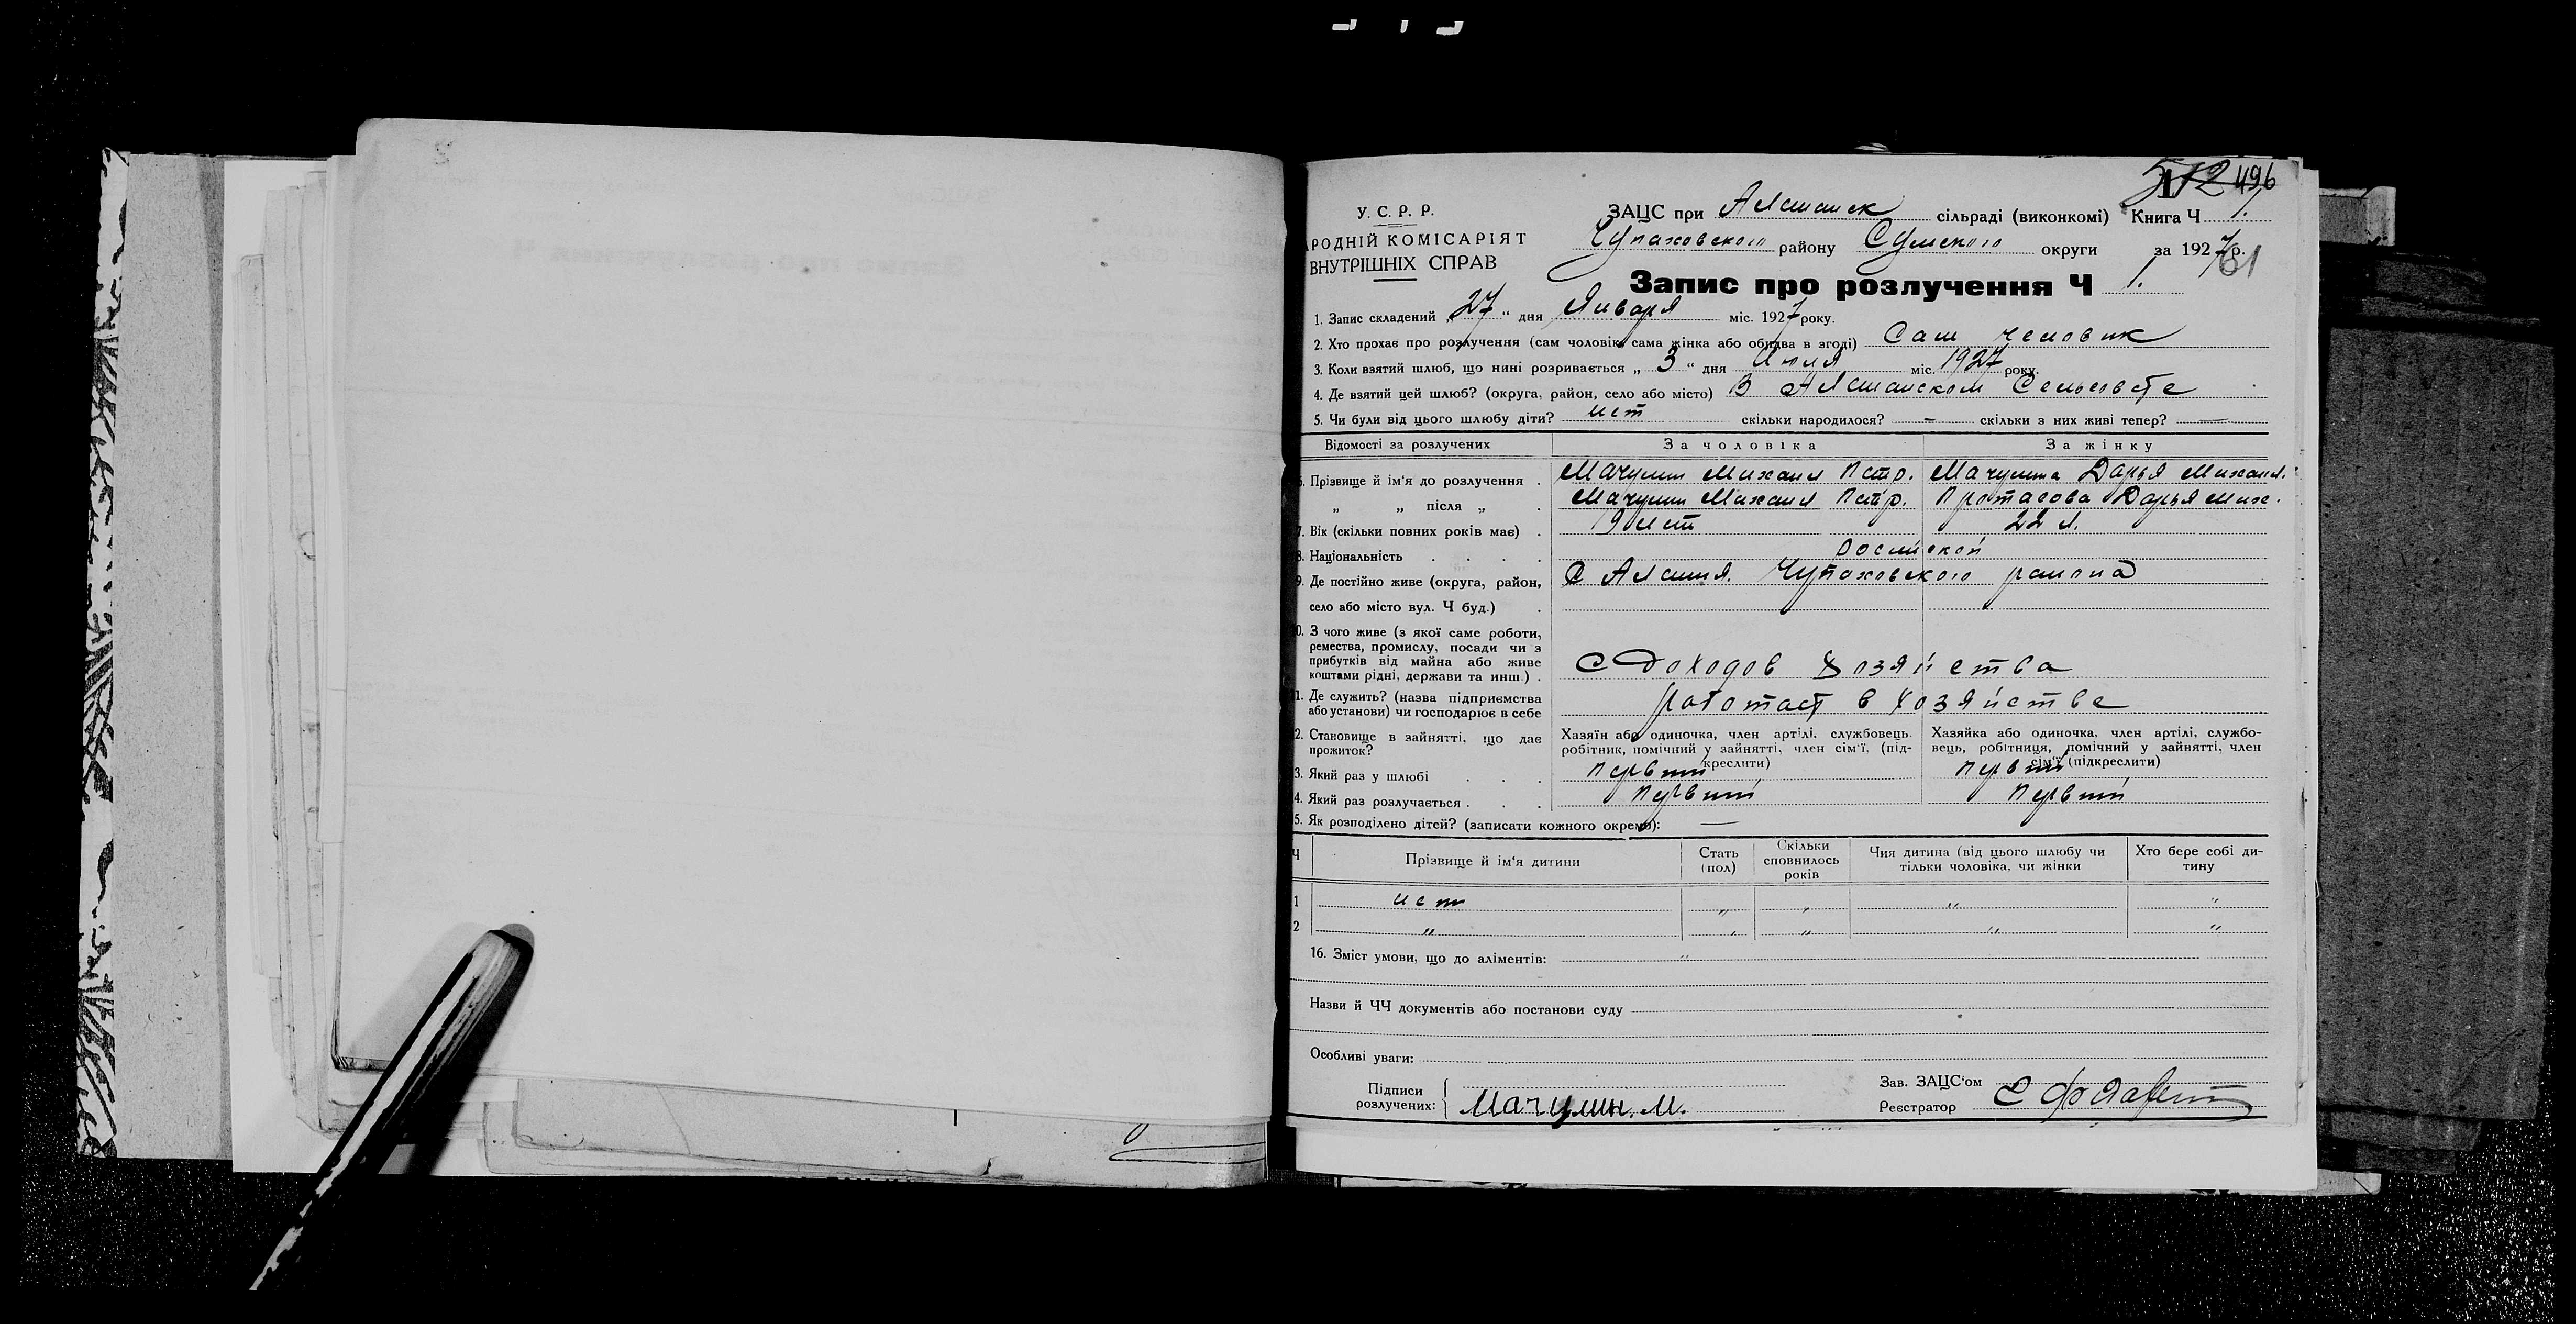 512 496
У. С. Р. Р.
РОДНІЙ КОМІСАРІЯТ
ВНУТРІШНІХ СПРАВ
ЗАЦС при Алешанск сільраді (виконкомі) Книга Ч 1.
Чупаховского району Сумского округи за 1927 р.
61
Запис про розлучення Ч 1.
1. Запис складений „27“ дня Января міс. 1927 року.
2. Хто прохає про розлучення (сам чоловік, сама жінка або обидва в згоді) Сам человик
3. Коли взятий шлюб, що нині розривається „3“ дня Июля міс. 1927 року.
4. Де взятий цей шлюб? (округа, район, село або місто) В Алешанском Сельсовете
5. Чи були від цього шлюбу діти? нет скільки народилося? — скільки з них живі тепер? —
Відомості за розлучених За чоловіка За жінку
6. Прізвище й ім'я до розлучення . Мачулин Михаил Петр. Мачулина Дарья Михаил.
„ „ після „ . Мачулин Михаил Петр. Протасова Дарья Мих.
7. Вік (скільки повних років має) . 19 лет 22 л.
8. Національність . . . Російской
9. Де постійно живе (округа, район, С Алешня. Чупаховского района
село або місто вул. Ч буд.) .
10. З чого живе (з якої саме роботи,
ремества, промислу, посади чи з
прибутків від майна або живе
коштами рідні, держави та инш.) . С Доходов Хозяйства
11. Де служить? (назва підприємства
або установи) чи господарює в себе работает в хозяйстве
2. Становище в зайнятті, що дає прожиток? Хазяїн або одиночка, член артілі, службовець, робітник, помічний у зайнятті, член сім'ї, (підкреслити) Хазяйка або одиночка, член артілі, службовець, робітниця, помічний у зайнятті, член сім'ї (підкреслити)
3. Який раз у шлюбі . . . Первый Первый
4. Який раз розлучається . . . Первый Первый
5. Як розподілено дітей? (записати кожного окремо): —
Ч Прізвище й ім'я дитини Стать (пол) Скільки сповнилось років Чия дитина (від цього шлюбу чи тільки чоловіка, чи жінки Хто бере собі дитину
1 нет „ „ „ „
2 „ „ „ „ „
16. Зміст умови, що до аліментів: „
Назви й ЧЧ документів або постанови суду
Особливі уваги:
Підписи розлучених: Мачулин. М.
Зав. ЗАЦС'ом
Реєстратор